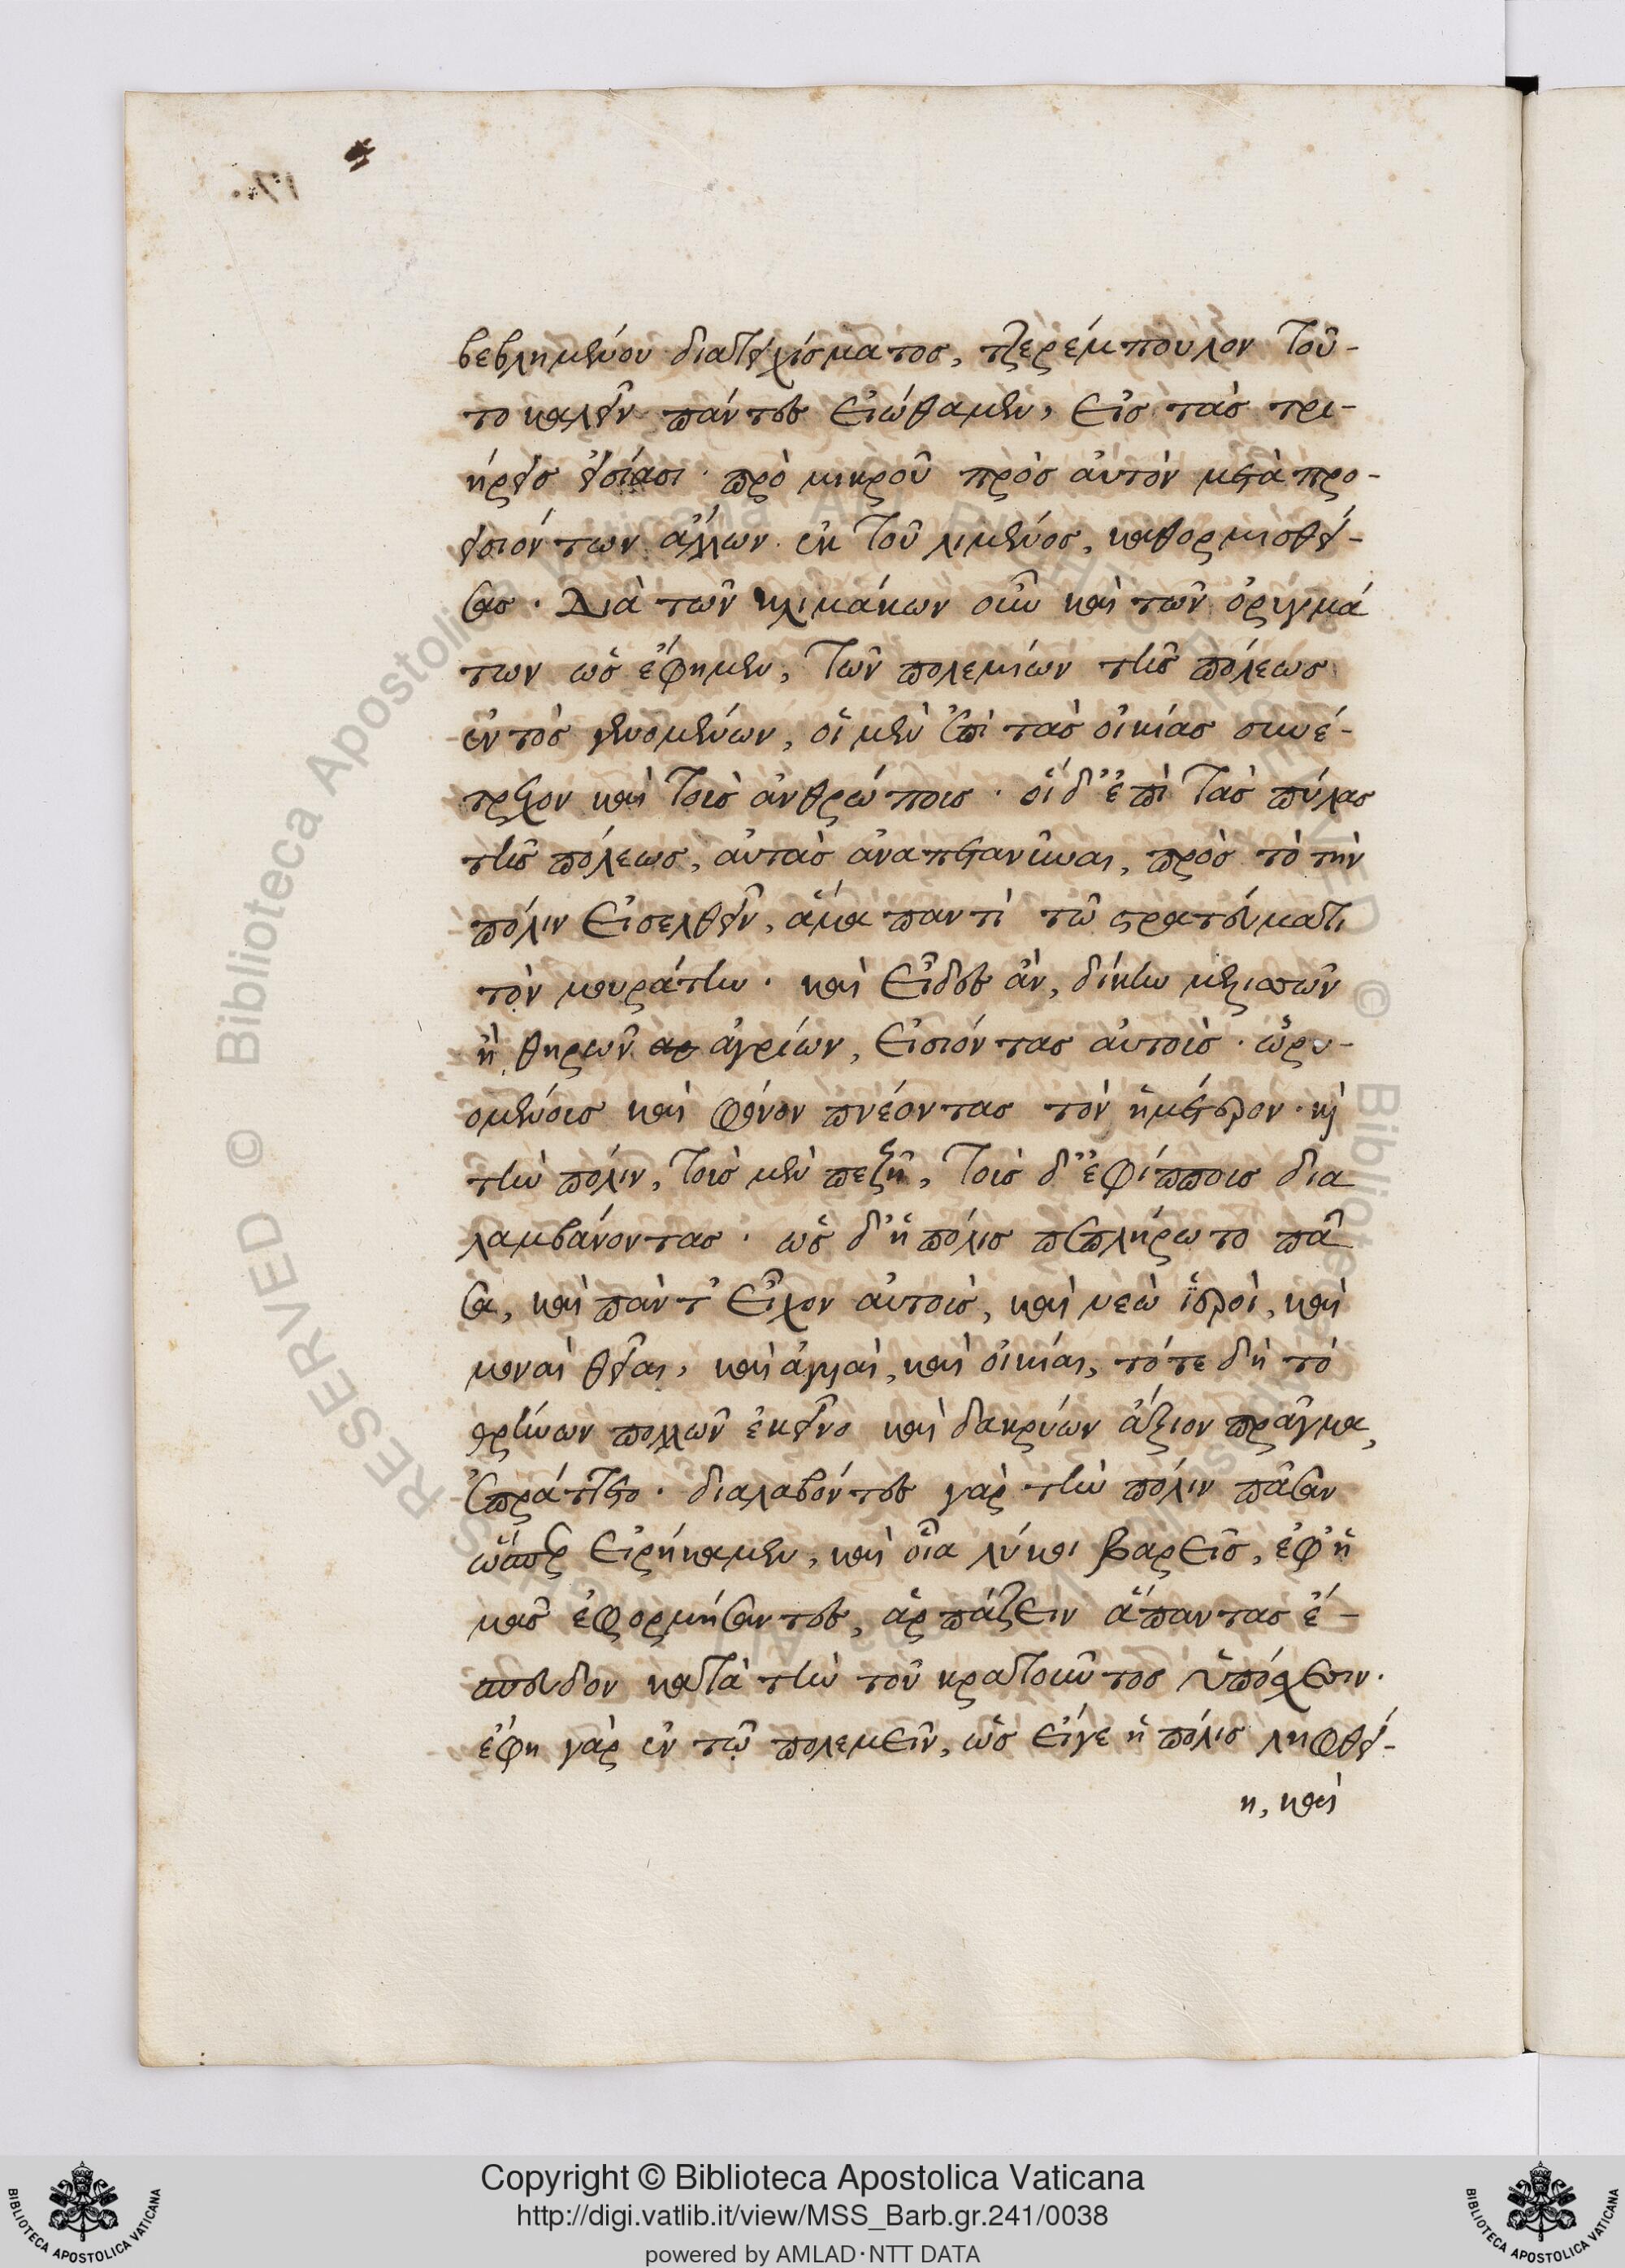 βεβλημένου διατειχίσματος, τζερέμπουλον τοῦ-
το καλεῖν πάντες εἰώθαμεν, εἰς τὰς τρι-
ήρεις εἰσίασι· πρὸ μικροῦ πρὸς αὐτὸν μετὰ προ-
εισιόντων ἄλλων ἐκ τοῦ λιμένος, καθορμισθεί-
σας· Διὰ τῶν κλιμάκων οὖν καὶ τῶν ὀριγμά
των ὡς ἔφημεν, τῶν πολεμίων τῆς πόλεως
ἐντὸς γενομένων, οἱ μὲν ἐπὶ τὰς οἰκίας συνέ-
τρεχον καὶ τοῖς ἀνθρώποις· οἱ δ' ἐπὶ τὰς πύλας
τῆς πόλεως, αὐτὰς ἀναπεταννῦναι, πρὸς τὸ τὴν
πόλιν εἰσελθεῖν, ἅμα παντὶ τῷ στρατεύματι
τὸν μουράτην· καὶ εἶδες ἂν, δίκην μελισσῶν
ἢ θηρῶν ἀγρίων, εἰσιόντας αὐτοὺς· ὠρυ-
ομένους καὶ φόνον πνέοντας τὸν ἡμέτερον· καὶ
τὴν πόλιν, τοὺς μὲν πεζῇ, τοὺς δ' ἐφίπποις δια
λαμβάνοντας· ὡς δ' ἡ πόλις πεπλήρωτο πᾶ
σα, καὶ πάντ' εἶχον αὐτοὺς, καὶ νεὼ ἱεροὶ, καὶ
μοναὶ θεῖαι, καὶ ἀγυιαὶ, καὶ οἰκίαι, τότε δὴ τὸ
θρήνων πολλῶν ἐκεῖνο καὶ δακρύων ἄξιον πρᾶγμα,
ἐπράττετο· διαλαβόντες γὰρ τὴν πόλιν πᾶσαν
ὥσπερ εἰρήκαμεν, καὶ οἷα λύκοι βαρεῖς, ἐφ' ἡ
μᾶς ἐφορμήσαντες, ἁρπάζειν ἅπαντας ἔ-
σπευδον κατὰ τὴν τοῦ κρατοῦντος ὑπόσχεσιν·
ἔφη γὰρ ἐν τῷ πολεμεῖν, ὡς εἴγε ἡ πόλις ληφθεί-
η, καὶ
Copyright © Biblioteca Apostolica Vaticana
http://digi.vatlib.it/view/MSS_Barb.gr.241/0038
powered by AMLAD·NTT DATA